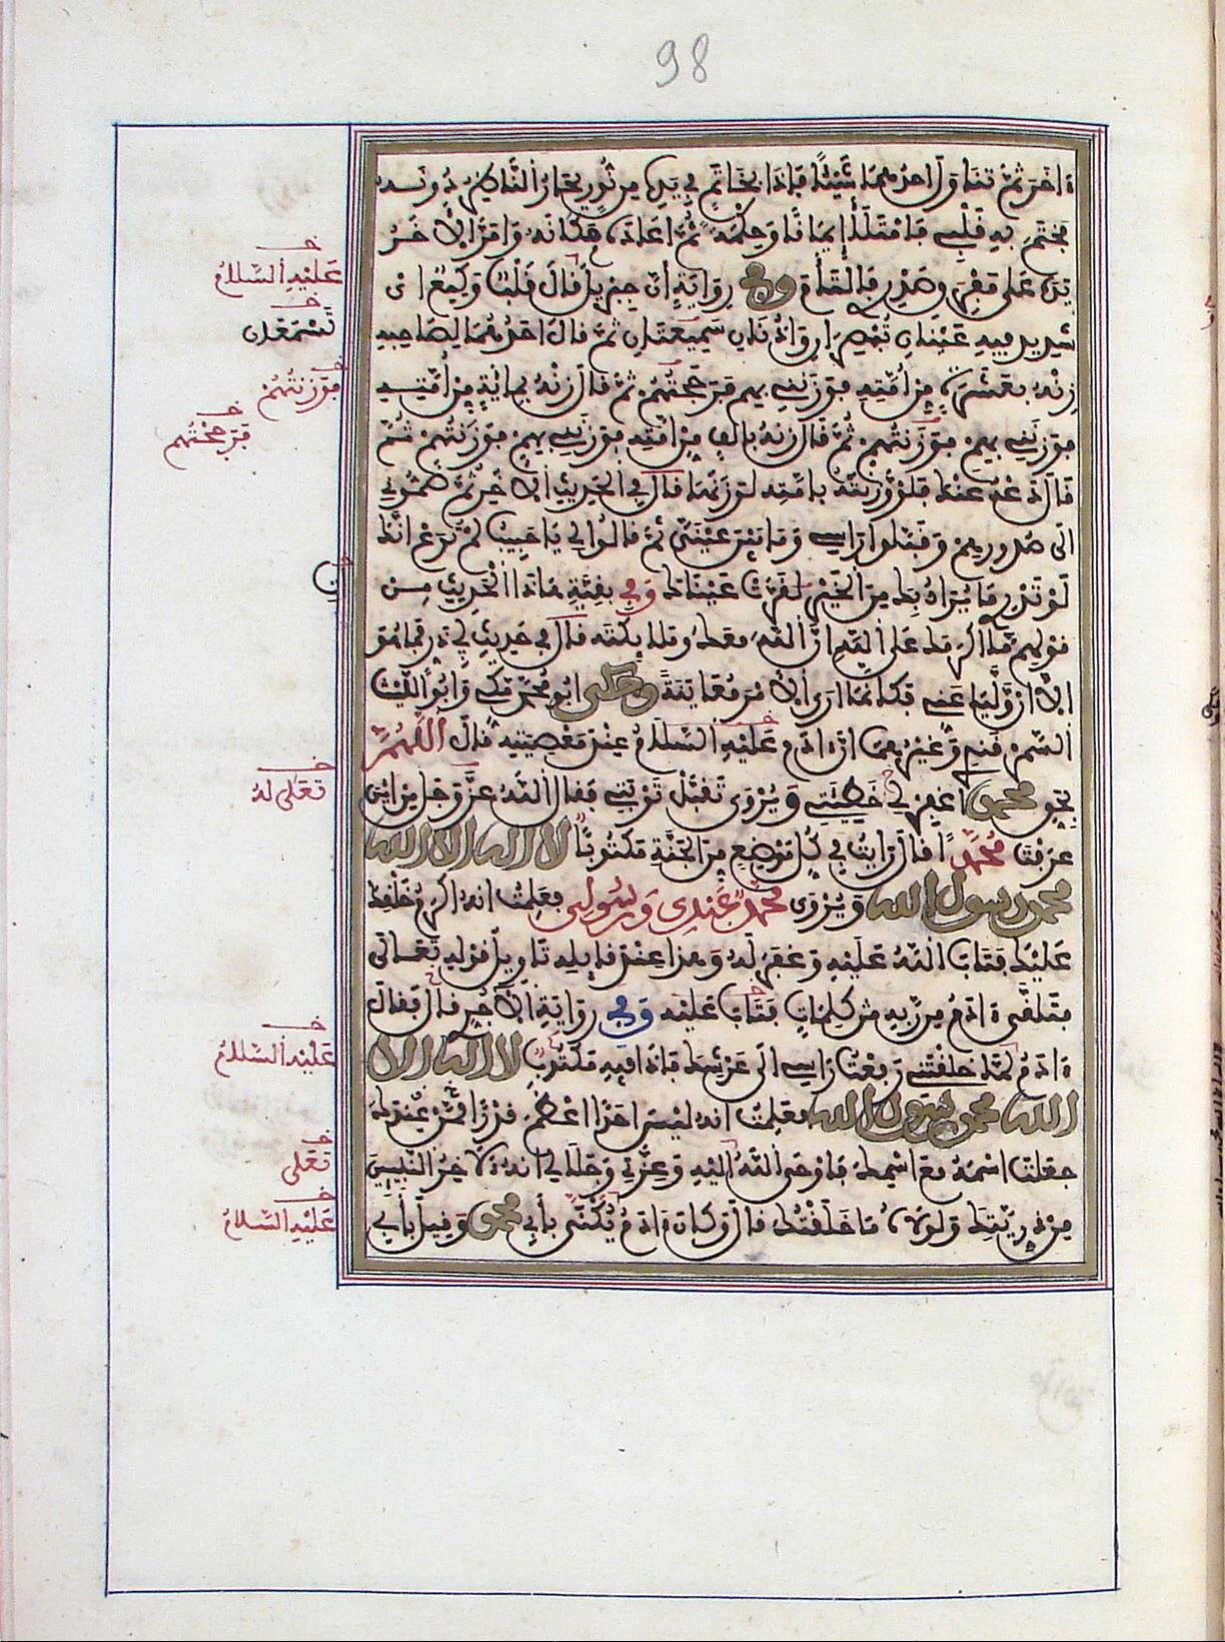 98
ءاخر ثم تناول احدهما شيئا فإذا بخاتم في يده من نور يحار الناظر دونه
فختم به قلبي فامتلأ إيمانا وحكمة ثم اعاده مكانه وامر الآخر
يده على مفرق صدري فالتأم وفي رواية ان جبريل قال قلب وكيع اى
شديد فيه عينان تبصران واذنان سميعتان ثم قال احدهما لصاحبه
زنه بعشرة من امته فوزنني بهم فرجحتهم ثم قال زنه بمائة من امته
فوزنني بهم فوزنتهم ثم قال زنه بألف من امته فوزنني بهم فوزنتهم ثم
قال دعه عنك فلو وزنته بامته لوزنها قال في الحديث الآخر ثم ضموني
الى صدورهم وقبلوا رأسي وما بين عيني ثم قالوا لي يا حبيب لم ترع انك
لو تدري ما يراد بك من الخير لقرت عيناك وفي بقية هاذا الحديث من
قولهم ما اكرمك على الله ان الله معك وملائكته قال في حديث ابي ذر فما هو
الا ان وليا عني فكأنما ارى الأمر معاينة وحكى ابو محمد مكي وابو الليث
السمرقندي وغيرهما ان ءادم عليه السلام عند معصيته قال اللهم
بحق محمد اغفر لي خطيئتي ويروى تقبل توبتي فقال الله عز وجل من اين
عرفت محمدا قال رأيت في كل موضع من الجنة مكتوبا لا اله الا الله
محمد رسول الله ويروى محمد عبدي ورسولي فعلمت انه اكرم خلقك
عليك فتاب الله عليه وغفر له وهذا عند قايله تاويل قوله تعالى
فتلقى ءادم من ربه من كلمات فتاب عليه وفي رواية الآجري قال فقال
ءادم لما خلقتني رفعت رأسي الى عرشك فاذا فيه مكتوب لا اله الا
الله محمد رسول الله فعلمت انه ليس احد اعظم قدرا ممن
جعلت اسمه مع اسمك فاوحى الله اليه وعزتي وجلالي انه لآخر النبيين
من ذريتك ولولاه ما خلقتك قال وكان ءادم يكنى بأبي محمد وقيل بأبي
عليه السلام
تسمعان
فوزنتهم
فرجحتهم
تعلى له
عليه السلام
تعلى
عليه السلام